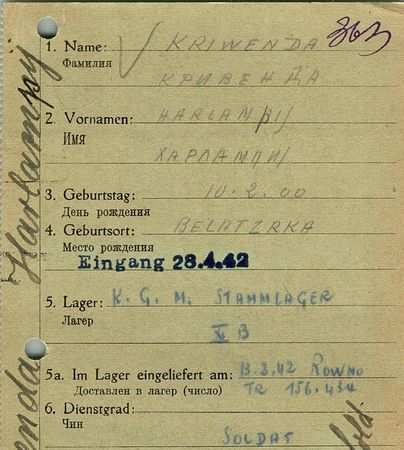 363
1. Name: KRIWENDA
Фамилия
КРИВЕНДА
2. Vornamen: HARLAMPIJ
Имя
ХАРЛАМПИЙ
3. Geburtstag: 10.2.00
День рождения
4. Geburtsort: BELATZRKA
Место рождения
Eingang 28.4.42
5. Lager: K. G. M. STAMMLAGER
Лагер
XI B
5a. Im Lager eingeliefert am: 13.2.42 ROWNO
Доставлен в лагер (число) TR 156.434
6. Dienstgrad:
Чин
SOLDAT
Harlampij